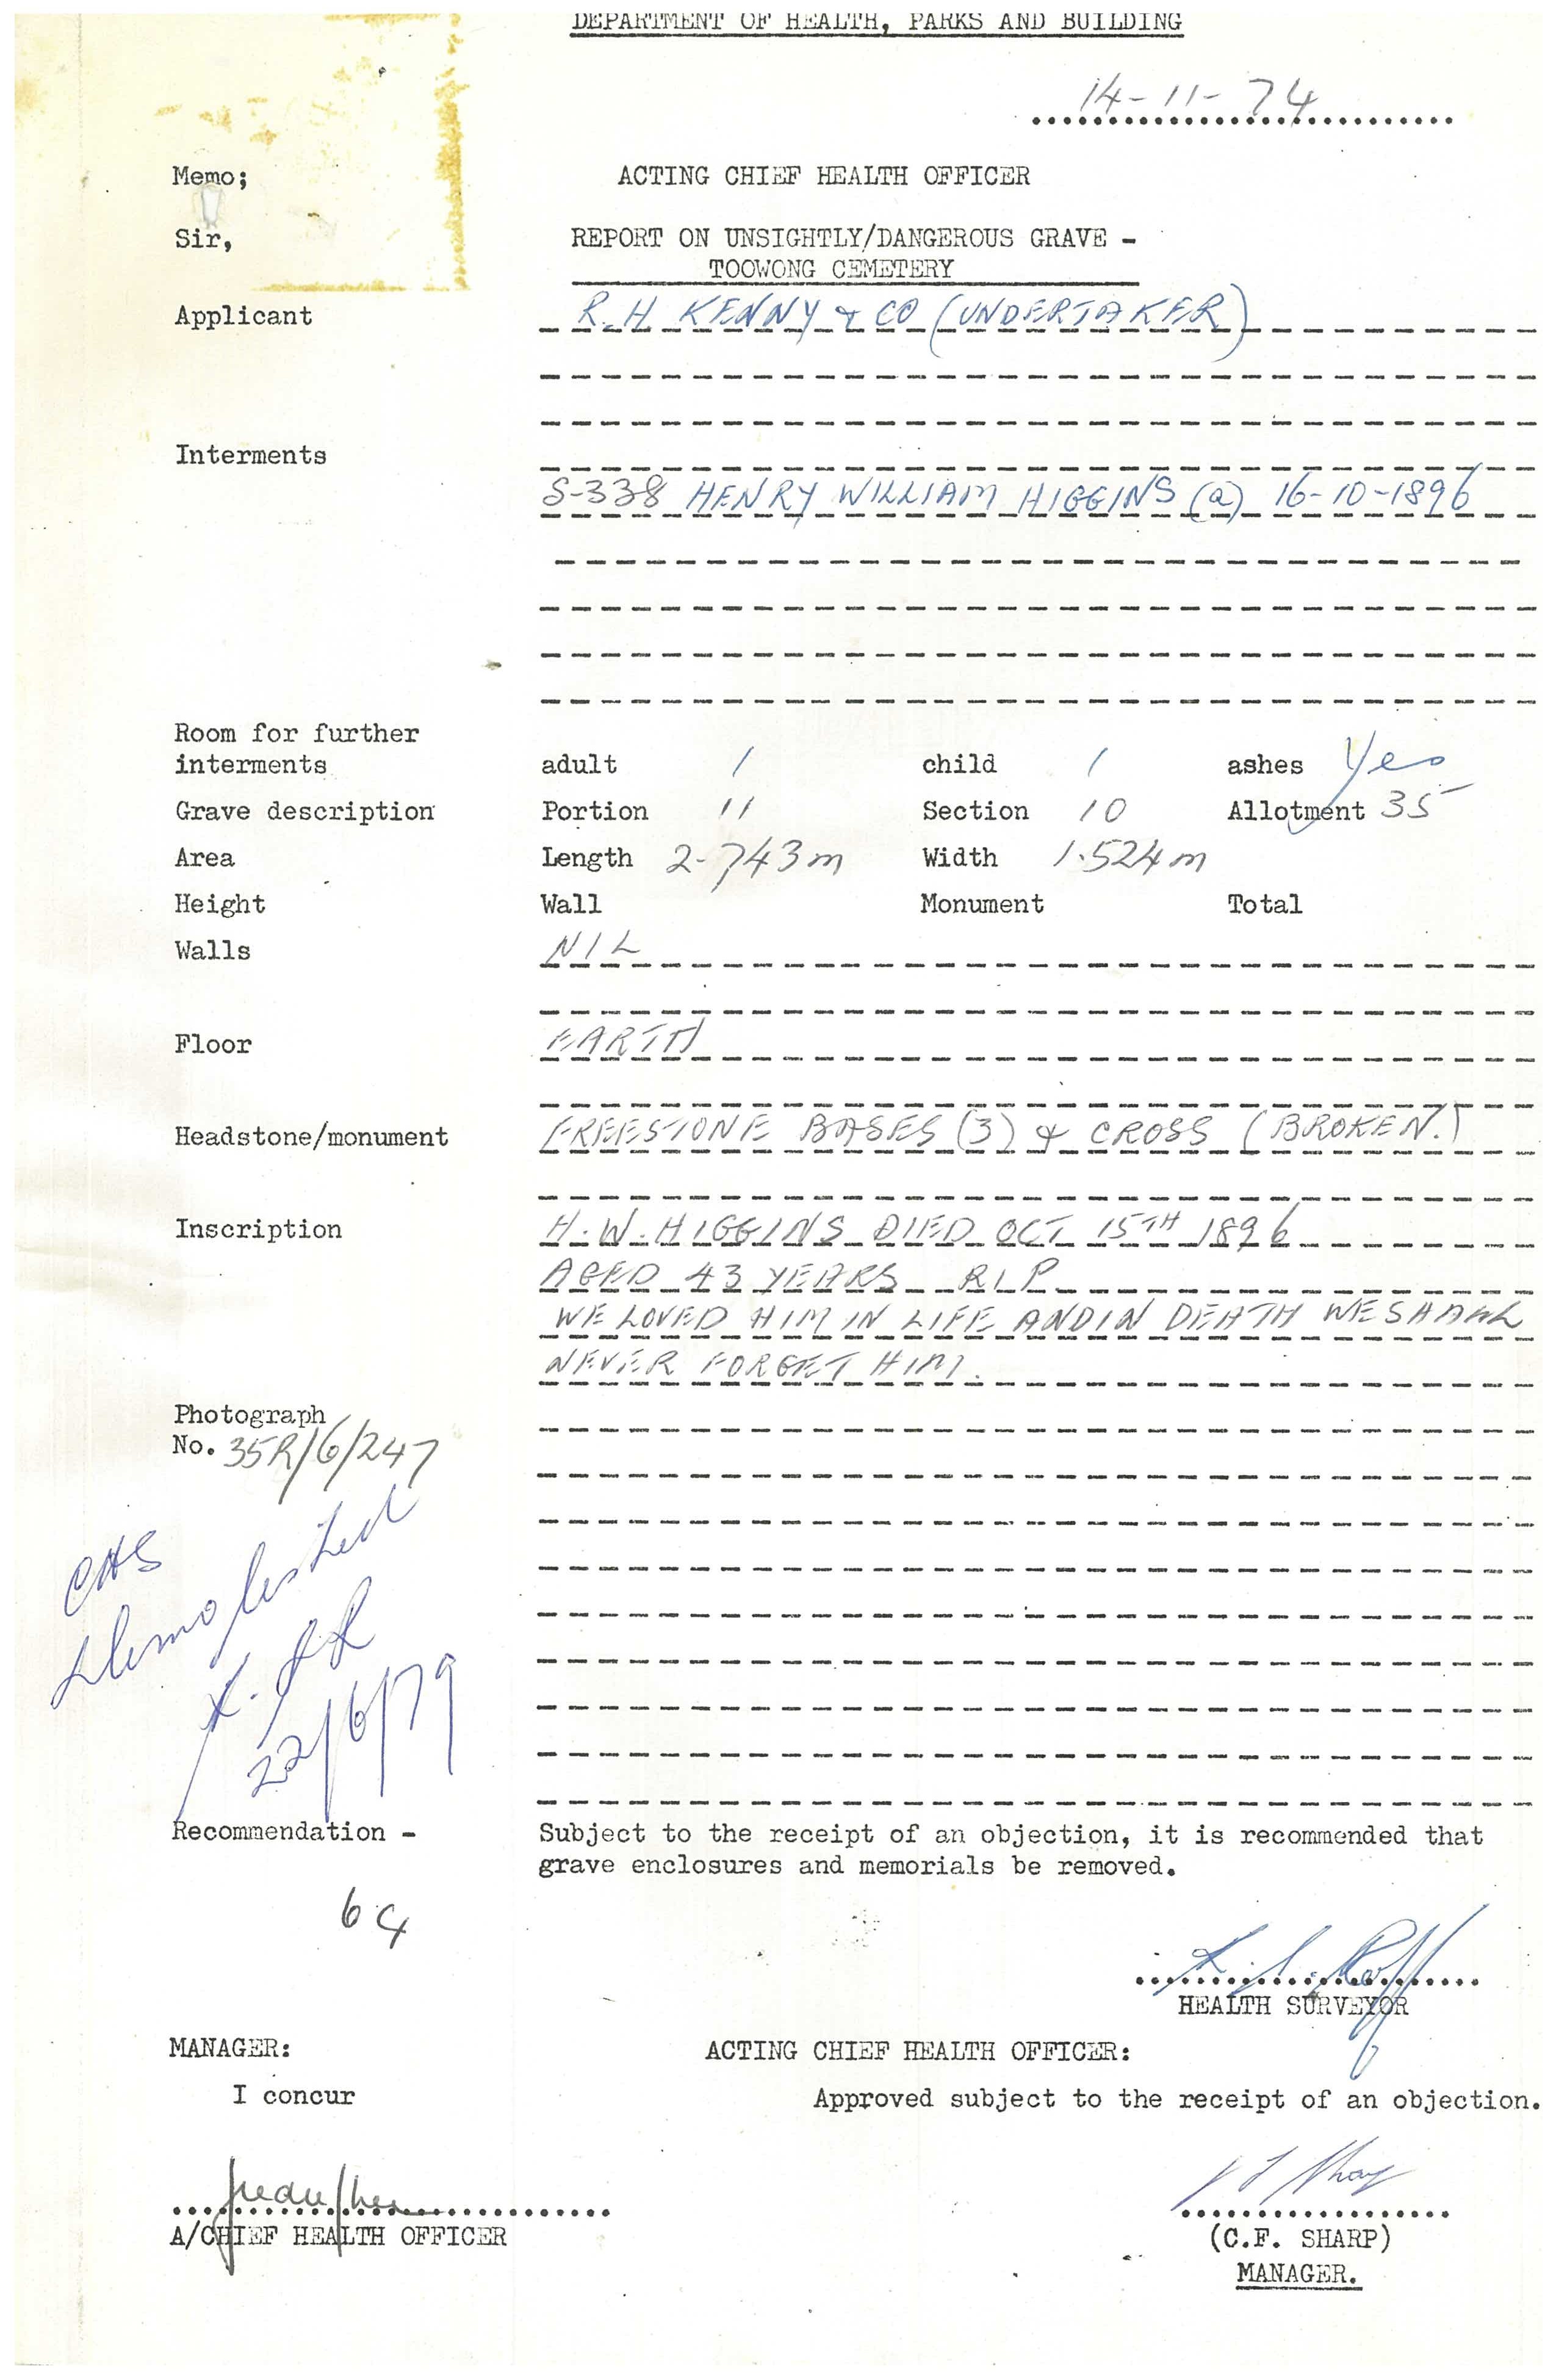 DEPARTMENT OF HEALTH, PARKS AND BUILDING
14-11-74
Memo; ACTING CHIEF HEALTH OFFICER
Sir, REPORT ON UNSIGHTLY/DANGEROUS GRAVE -
TOOWONG CEMETERY
Applicant R.H KENNY & CO (UNDERTAKER)
Interments
S-338 HENRY WILLIAM HIGGINS (a) 16-10-1896
Room for further
interments adult 1 child 1 ashes Yes
Grave description Portion 11 Section 10 Allotment 35
Area Length 2.743m Width 1.524m
Height Wall Monument Total
Walls NIL
Floor EARTH
Headstone/monument FREESTONE BASES (3) & CROSS (BROKEN.)
Inscription H.W. HIGGINS DIED OCT 15TH 1896
AGED 43 YEARS RIP
WE LOVED HIM IN LIFE ANDIN DEATH WE SHALL
NEVER FORGET HIM.
Photograph
No. 35R/6/247
CHS
Demolished
22/6/79
Recommendation - Subject to the receipt of an objection, it is recommended that
grave enclosures and memorials be removed.
64
HEALTH SURVEYOR
MANAGER: ACTING CHIEF HEALTH OFFICER:
I concur Approved subject to the receipt of an objection.
A/CHIEF HEALTH OFFICER (C.F. SHARP)
MANAGER.